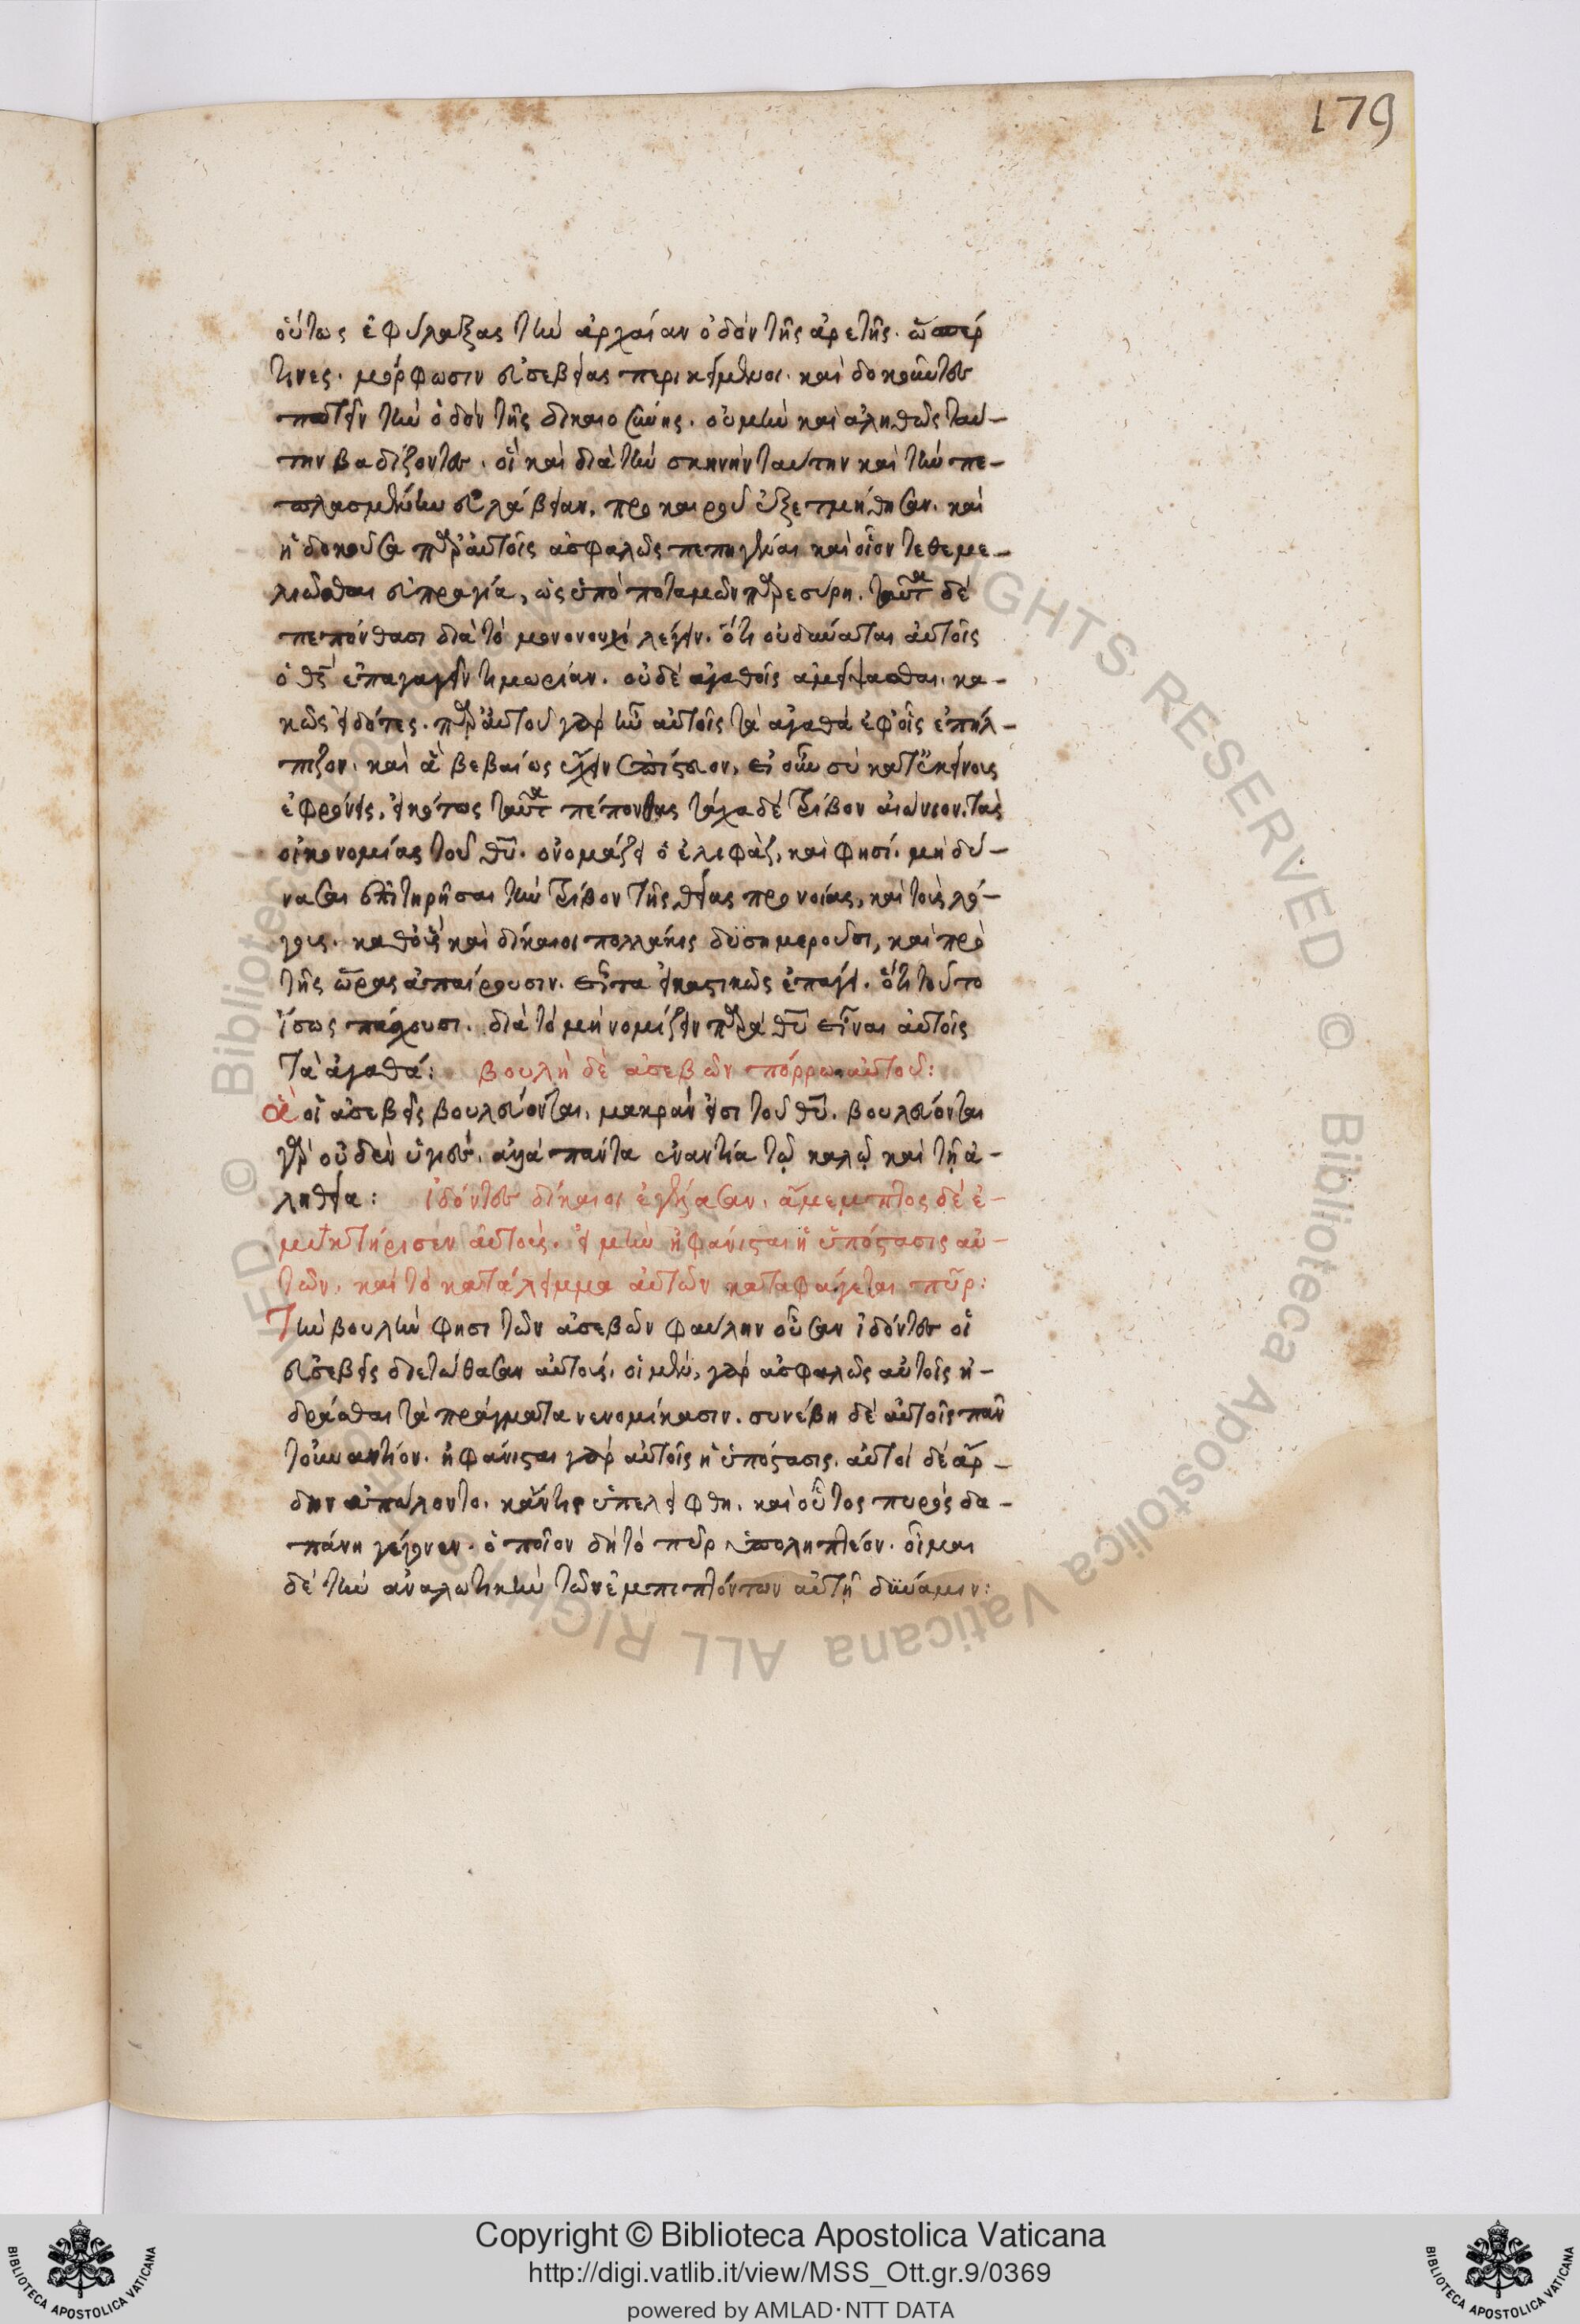 179
οὕτως ἐφύλαξας τὴν ἀρχαίαν ὁδὸν τῆς ἀρετῆς. ὥσπερ
τινες. μόρφωσιν εὐσεβείας περικείμενοι. καὶ δοκοῦντες
πατεῖν τὴν ὁδὸν τῆς δικαιοσύνης. οὐ μὴν καὶ ἀληθῶς ταύ-
την βαδίζοντες. οἳ καὶ διὰ τὴν σκηνὴν ταύτην καὶ τὴν πε-
πλασμένην εὐλάβειαν, προ καιροῦ ἐξετμήθησαν. καὶ
ἡ δοκοῦσα παρ' αὐτοῖς ἀσφαλῶς πεπηγέναι καὶ οἷον τεθεμε-
λιῶσθαι εὐπραγία, ὡς ὑπὸ ποταμῶν παρεσύρη. ταῦτα δὲ
πεπόνθασι διὰ τὸ μονονουχὶ λέγειν. ὅτι οὐ δύναται αὐτοῖς
ὁ θς ἐπαγαγεῖν τιμωρίαν. οὐδὲ ἀγαθοῖς ἀμείψασθαι. κα-
κῶς εἰδότες. παρ' αὐτοῦ γὰρ ἦν αὐτοῖς τὰ ἀγαθὰ ἐφ' οἷς ἐπήλ-
πιζον. καὶ ἃ βεβαίως ἔχειν ἐπίστευον, εἰ οὖν σὺ κατ' ἐκείνους
ἐφρόνεις, εἰκότως ταῦτα πέπονθας τάχα δὲ τρίβον αἰώνιον. τὰς
οἰκονομίας τοῦ θυ. ὀνομάζει ὁ ἐλιφὰζ, καὶ φησί. μὴ δύ-
νασαι ἐπιτηρῆσαι τὴν τρίβον τῆς θείας προνοίας, καὶ τοὺς λό-
γους. καθ' οὓς καὶ δίκαιοι πολλάκις δυσημεροῦσι, καὶ πρὸ
τῆς ὥρας ἀπαίρουσιν. εἶτα εἰκαστικῶς ἐπάγει. ὅτι τοῦτο
ἴσως πάσχουσι. διὰ τὸ μὴ νομίζειν παρὰ θυ εἶναι αὐτοῖς
τὰ ἀγαθά: βουλὴ δὲ ἀσεβῶν πόρρω αὐτοῦ:
ἃ οἱ ἀσεβεῖς βουλεύονται, μακράν εἰσι τοῦ θυ. βουλεύονται
γὰρ οὐδὲν ὑγιὲς. ἀλλὰ πάντα ἐναντία τῷ καλῷ καὶ τῇ ἀ-
ληθεία: ἰδόντες δίκαιοι ἐγέλασαν. ἄμεμπτος δὲ ἐ-
μυκτήρισεν αὐτοὺς. εἰ μὴν ἠφάνισται ἡ ὑπόστασις αὐ-
τῶν, καὶ τὸ κατάλειμμα αὐτῶν καταφάγεται πῦρ:
Τὴν βουλὴν φησι τῶν ἀσεβῶν φαύλην οὖσαν ἰδόντες οἱ
εὐσεβεῖς διετώθασαν αὐτούς. οἱ μὲν, γὰρ ἀσφαλῶς αὐτοῖς ἡ-
δράσθαι τὰ πράγματα νενομίκασιν. συνέβη δὲ αὐτοῖς πᾶν
τοὐναντίον. ἠφάνισται γὰρ αὐτοῖς ἡ ὑπόστασις. αὐτοὶ δὲ ἄρ-
δην ἀπώλοντο. κἄν τις ὑπελείφθη. καὶ οὗτος πυρὸς δα-
πάνη γέγονεν. ὁποῖον δὴ τὸ πῦρ ὑποληπτέον. οἶμαι
δὲ τὴν ἀναλωτικὴν τῶν ἐμπιπτόντων αὐτῇ δύναμιν:
Copyright © Biblioteca Apostolica Vaticana
http://digi.vatlib.it/view/MSS_Ott.gr.9/0369
powered by AMLAD·NTT DATA
BIBLIOTECA APOSTOLICA VATICANA
BIBLIOTECA APOSTOLICA VATICANA
© Biblioteca Apostolica Vaticana ALL RIGHTS RESERVED